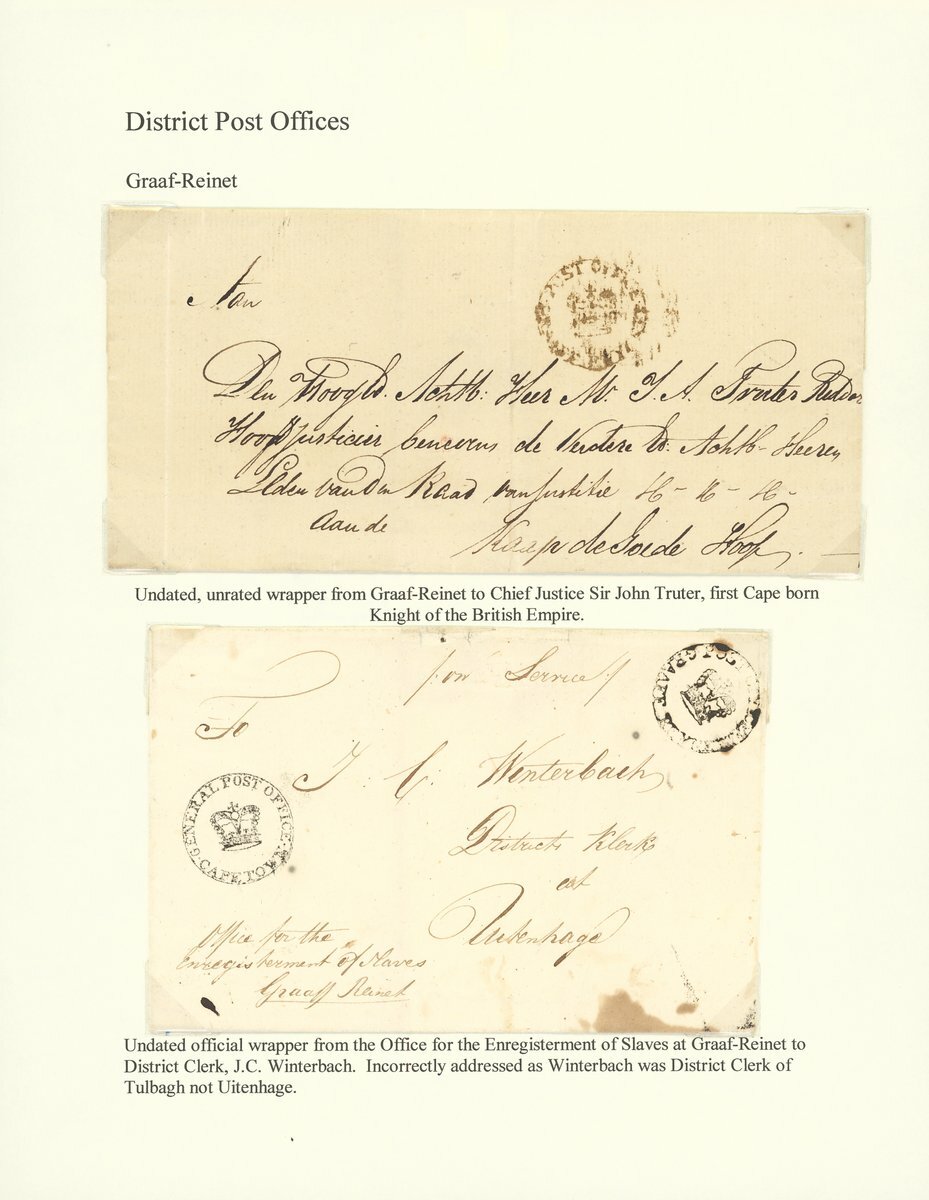 District Post Offices
Graaf-Reinet
Aan
Den HoogEd. Achtb: Heer Mr. J. A. Truter Ridder
Hoofdjusticier benevens de Verdere Ed: Achtb- Heeren
Leden van Den Raad van Justitie H- H- H-
Aan de
Kaap de Goede Hoop.
POST OFFICE
Undated, unrated wrapper from Graaf-Reinet to Chief Justice Sir John Truter, first Cape born
Knight of the British Empire.
on Service
To
J: C: Winterbach
Districts Klerk
at
Uitenhage
GENERAL POST OFFICE
CAPE TOWN
POST
GRAAFF
Office for the
Enregisterment of Slaves
Graaff Reinet
Undated official wrapper from the Office for the Enregisterment of Slaves at Graaf-Reinet to
District Clerk, J.C. Winterbach.  Incorrectly addressed as Winterbach was District Clerk of
Tulbagh not Uitenhage.